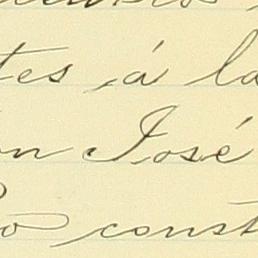 tes, á la
on José
io const